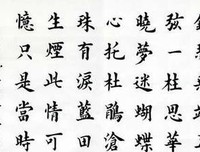 弦一柱思華
曉夢迷蝴蝶
心托杜鵑滄
珠有淚藍回
生煙此情可
憶只是當時